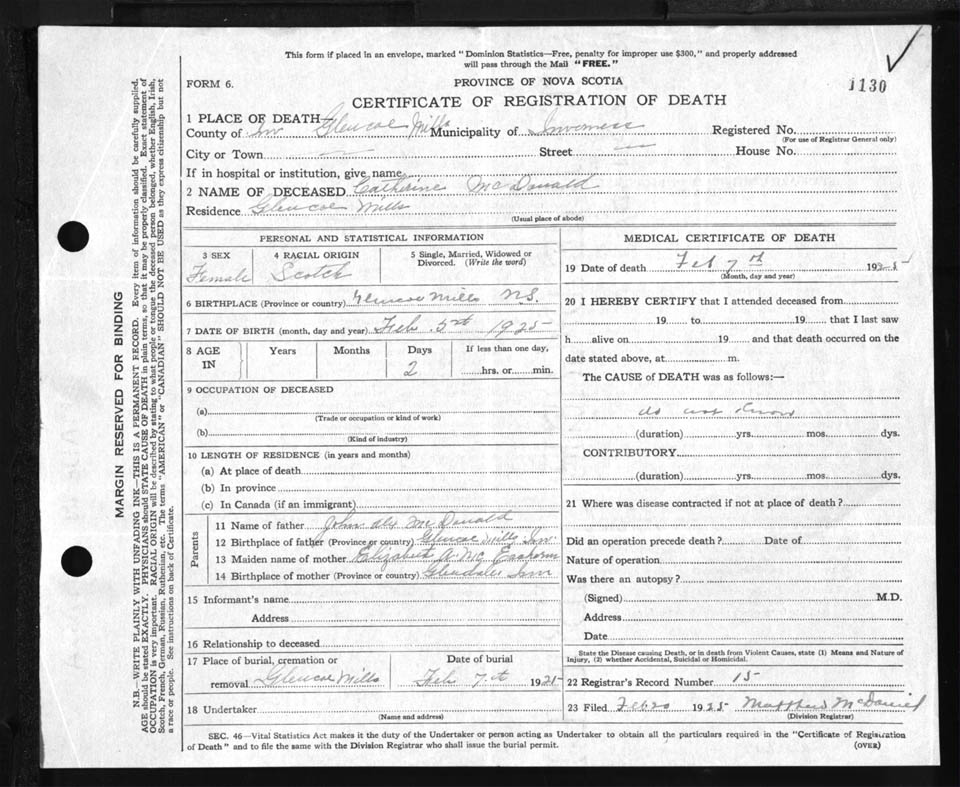 This form if placed in an envelope, marked "Dominion Statistics—Free, penalty for improper use $300," and properly addressed
will pass through the Mail "FREE."
1130
FORM 6.
PROVINCE OF NOVA SCOTIA
CERTIFICATE OF REGISTRATION OF DEATH
1 PLACE OF DEATH—
County of Inv Glencoe Mills Municipality of Inverness Registered No.
(For use of Registrar General only)
City or Town Street House No.
If in hospital or institution, give name
2 NAME OF DECEASED Catherine McDonald
Residence Glencoe Mills
(Usual place of abode)
PERSONAL AND STATISTICAL INFORMATION
3 SEX 4 RACIAL ORIGIN 5 Single, Married, Widowed or
Divorced. (Write the word)
Female Scotch
6 BIRTHPLACE (Province or country) Glencoe Mills N.S.
7 DATE OF BIRTH (month, day and year) Feb 5th 1925
8 AGE IN Years Months Days If less than one day,
2 hrs. or min.
9 OCCUPATION OF DECEASED
(a)
(Trade or occupation or kind of work)
(b)
(Kind of industry)
10 LENGTH OF RESIDENCE (in years and months)
(a) At place of death
(b) In province
(c) In Canada (if an immigrant)
Parents
11 Name of father John Alex McDonald
12 Birthplace of father (Province or country) Glencoe Mills Inv.
13 Maiden name of mother Elizabeth A. Mc
14 Birthplace of mother (Province or country) Glendale Inv
15 Informant's name
Address
16 Relationship to deceased
17 Place of burial, cremation or Date of burial
removal Glencoe Mills Feb 7th 1925
18 Undertaker
(Name and address)
MEDICAL CERTIFICATE OF DEATH
19 Date of death Feb 7th 1925
(Month, day and year)
20 I HEREBY CERTIFY that I attended deceased from
19 to 19 that I last saw
h alive on 19 and that death occurred on the
date stated above, at m.
The CAUSE of DEATH was as follows:—
do not know
(duration) yrs. mos. dys.
CONTRIBUTORY
(duration) yrs. mos. dys.
21 Where was disease contracted if not at place of death?
Did an operation precede death? Date of
Nature of operation
Was there an autopsy?
(Signed) M.D.
Address
Date
State the Disease causing Death, or in death from Violent Causes, state (1) Means and Nature of
Injury, (2) whether Accidental, Suicidal or Homicidal.
22 Registrar's Record Number 15
23 Filed Feb 20 1925 Matthew McDaniel
(Division Registrar)
SEC. 46—Vital Statistics Act makes it the duty of the Undertaker or person acting as Undertaker to obtain all the particulars required in the "Certificate of Registration
of Death" and to file the same with the Division Registrar who shall issue the burial permit.
(OVER)
MARGIN RESERVED FOR BINDING
N.B.—WRITE PLAINLY WITH UNFADING INK—THIS IS A PERMANENT RECORD. Every item of information should be carefully supplied.
AGE should be stated EXACTLY. PHYSICIANS should STATE CAUSE OF DEATH in plain terms, so that it may be properly classified. Exact statement of
OCCUPATION is very important. RACIAL ORIGIN will be described by stating to what people or tongue the deceased person belonged, whether English, Irish,
Scotch, French, German, Russian, Ruthenian, etc. The terms "AMERICAN" or "CANADIAN" SHOULD NOT BE USED as they express citizenship but not
a race or people. See instructions on back of Certificate.